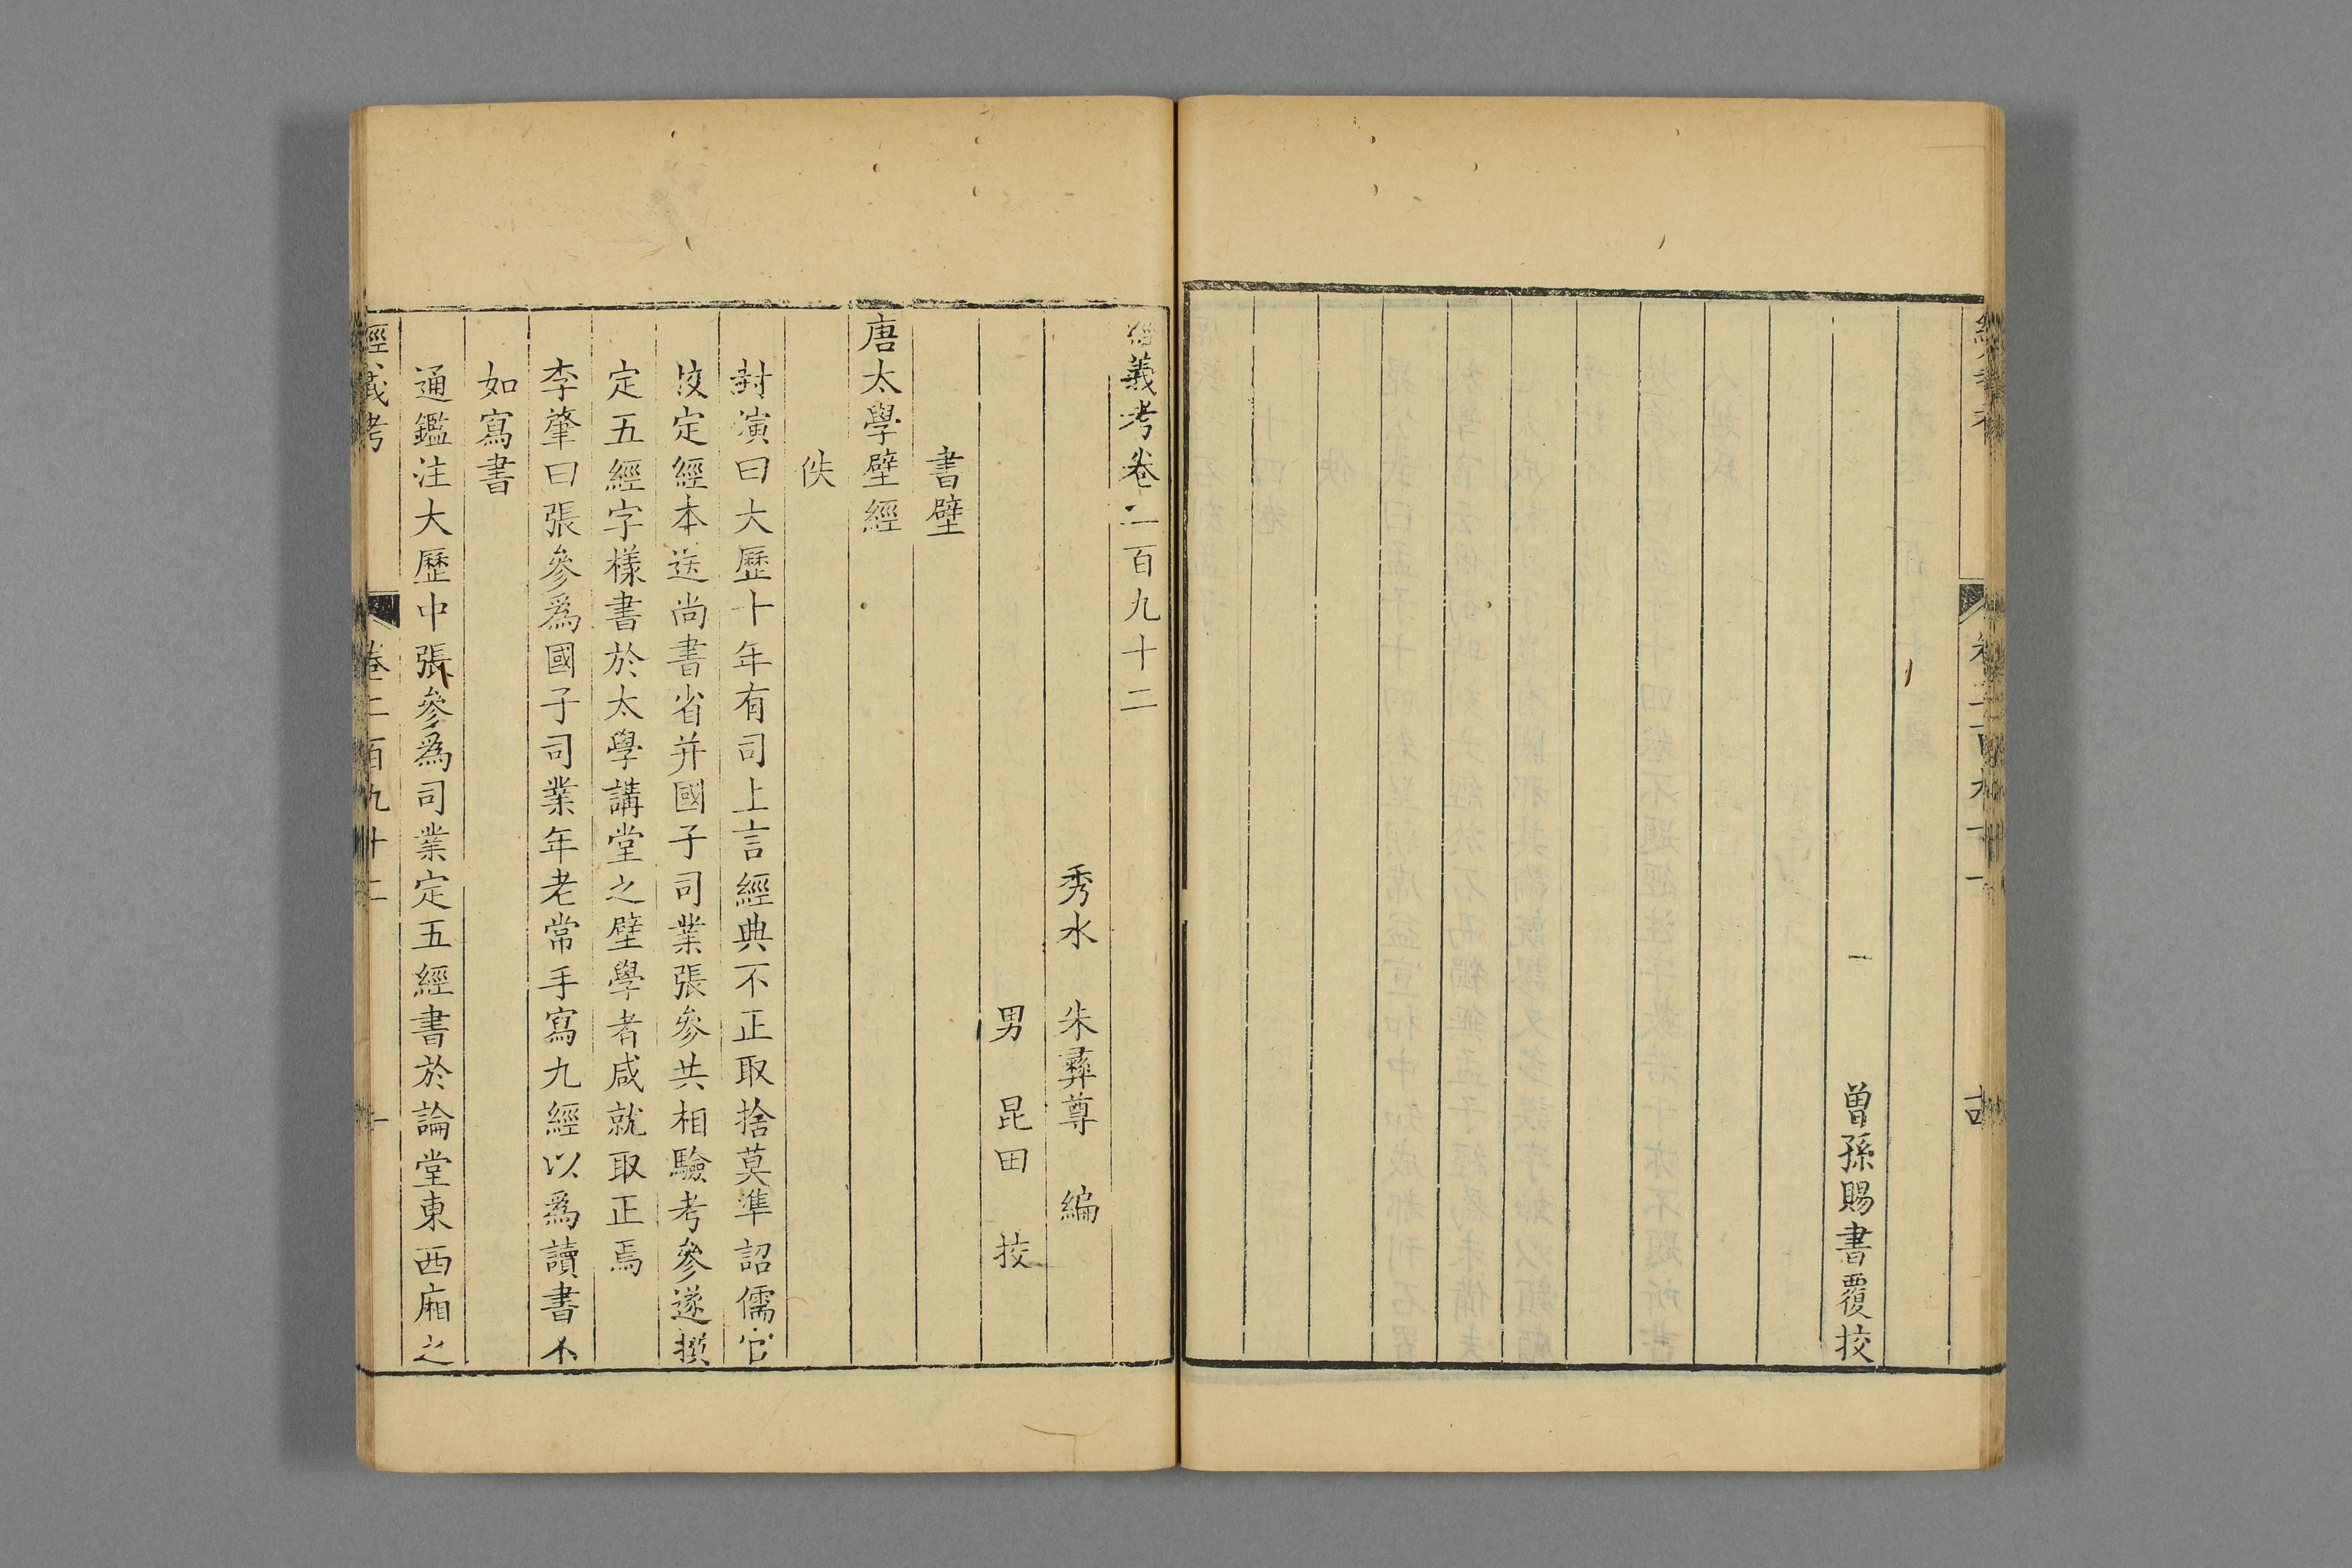 曾孫賜書覆挍
經義考卷二百九十二
秀水 朱彝尊 編
男 昆田 挍
書壁
唐太學壁經
佚
封演曰大歷十年有司上言經典不正取捨莫準詔儒官
挍定經本送尚書省并國子司業張參共相驗考參遂撰
定五經字樣書於太學講堂之壁學者咸就取正焉
李肇曰張參爲國子司業年老常手寫九經以爲讀書不
如寫書
通鑑注大歷中張參爲司業定五經書於論堂東西廂之
經義考 卷二百九十二 一